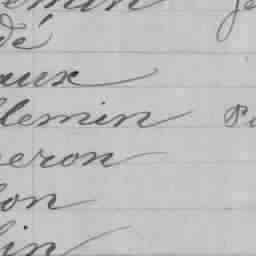 emin
dé
aux
lemin
eron
on
lin